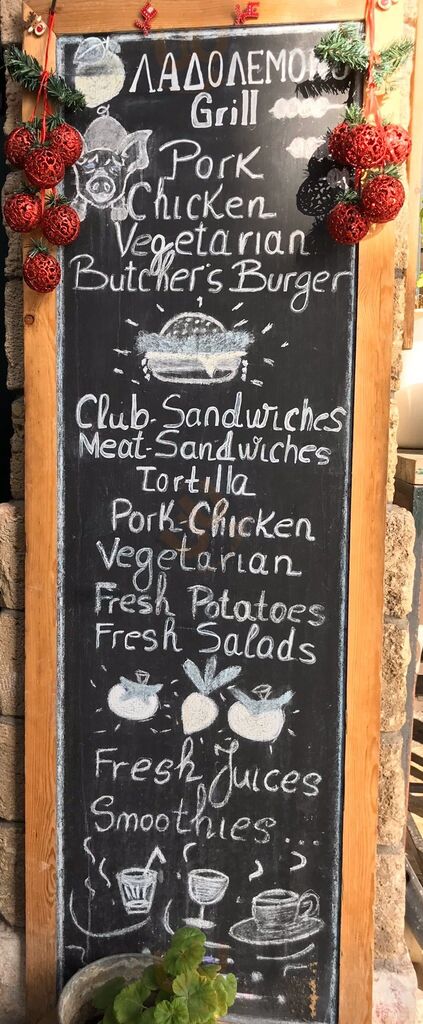 ΛΑΔΟΛΕΜΟΝΟ
Grill
Pork
Chicken
Vegetarian
Butcher's Burger
Club-Sandwiches
Meat-Sandwiches
Tortilla
Pork-Chicken
Vegetarian
Fresh Potatoes
Fresh Salads
Fresh Juices
Smoothies...